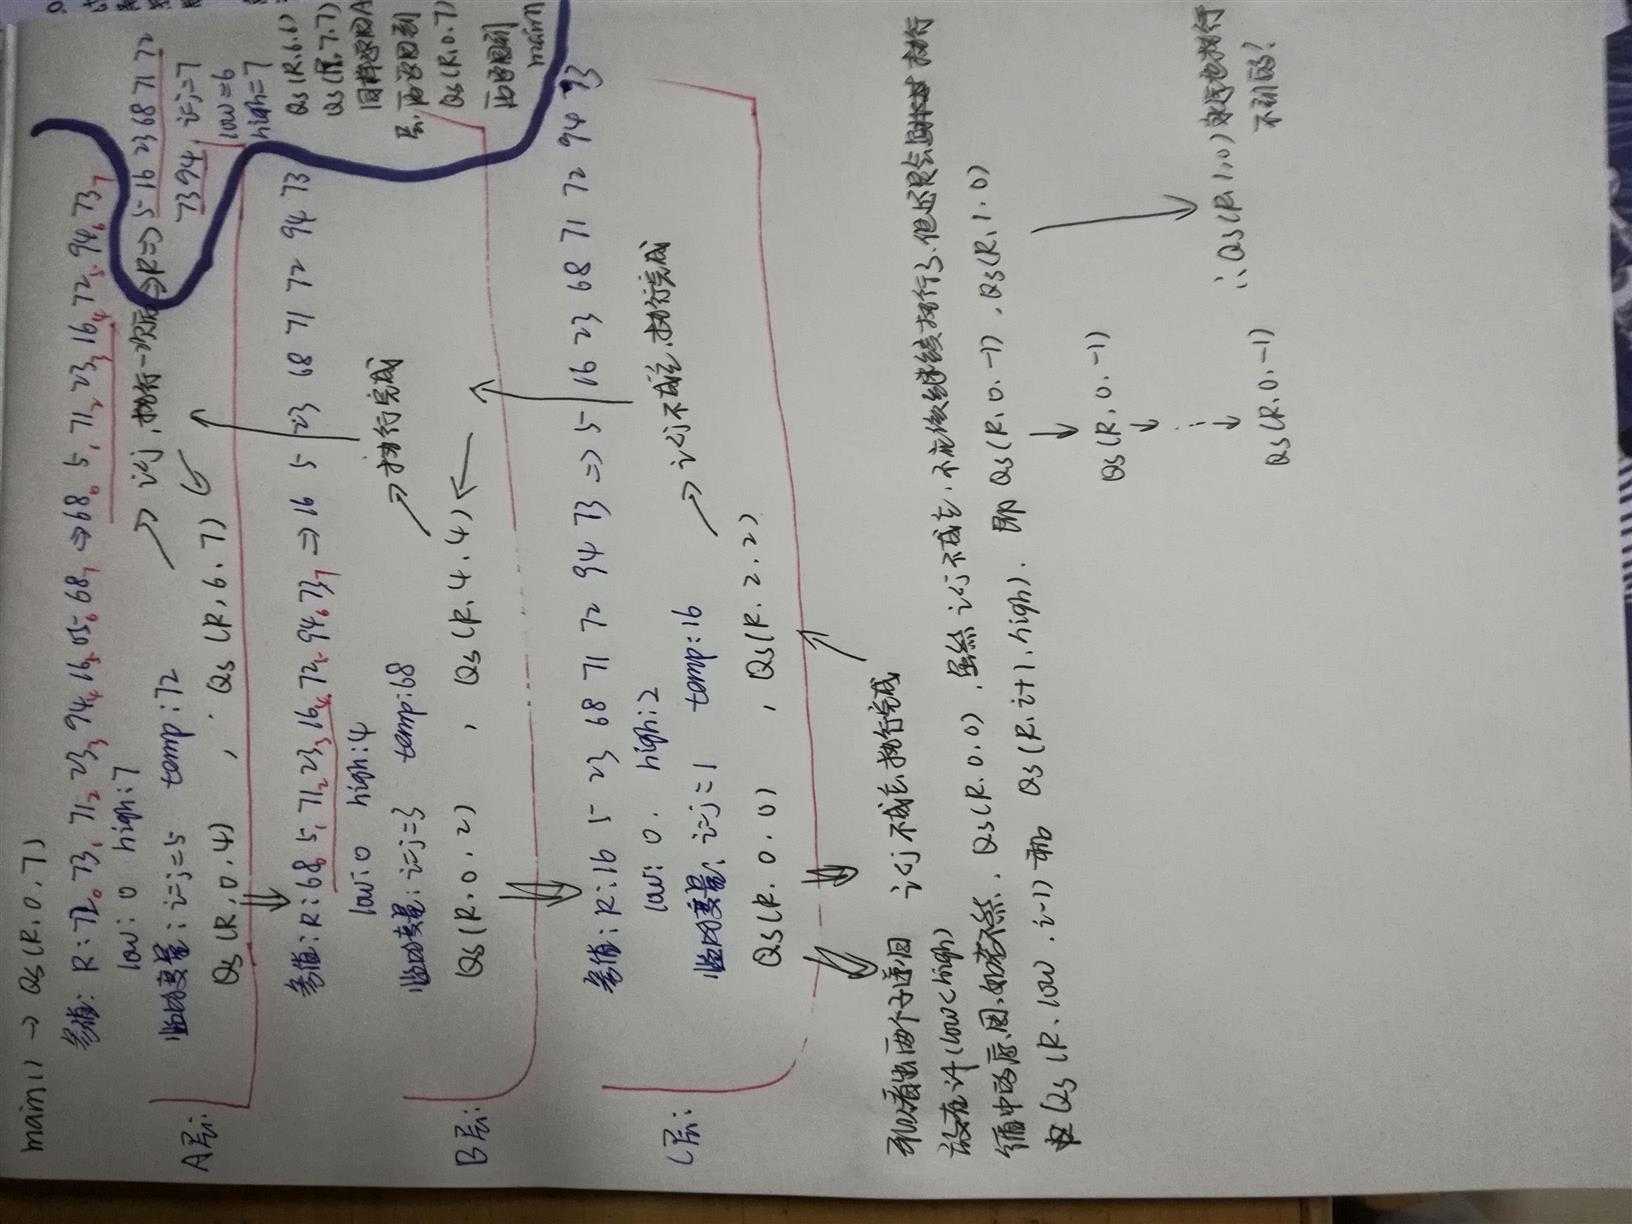 main() → Qs(R.0.7)
参值: R: 72₀ 73₁ 71₂ 23₃ 94₄ 16₅ 05₆ 68₇ ⇒ 68₀ 5₁ 71₂ 23₃ 16₄ 72₅ 94₆ 73₇
low: 0 high: 7
临时变量: i=j=5 temp:72 → i<j, 执行一次后 ⇒ R ⇒ 5 16 23 68 71 72
73 94, i=j=7
low=6
high=7
A层:
Qs(R.0.4) , Qs(R.6.7)
Qs(R.6.6)
Qs(R.7.7)
同样返回A
层,再返回到
Qs(R.0.7)
再返回到
main()
参值: R: 68₀ 5₁ 71₂ 23₃ 16₄ 72₅ 94₆ 73₇ ⇒ 16 5 23 68 71 72 94 73
low: 0 high: 4
临时变量: i=j=3 temp:68 → 执行完成
B层:
Qs(R.0.2) , Qs(R.4.4)
参值: R: 16 5 23 68 71 72 94 73 ⇒ 5 16 23 68 71 72 94 73
low: 0. high: 2
临时变量: i=j=1 temp:16 → i<j不成立,执行完成
C层:
Qs(R.0.0) , Qs(R.2.2)
可以看出两个子递归 i<j不成立,执行完成
没有 if(low<high)
Qs(R.0.0), 虽然 i<j不成立, 不应该继续执行了, 但还是会 执行
Qs(R.low.i-1) 和 Qs(R.i+1.high). 即 Qs(R.0.-1), Qs(R.1.0)
Qs(R.0.-1)
Qs(R.0.-1)
∴Qs(R.1.0) 永远也执行
不到的?